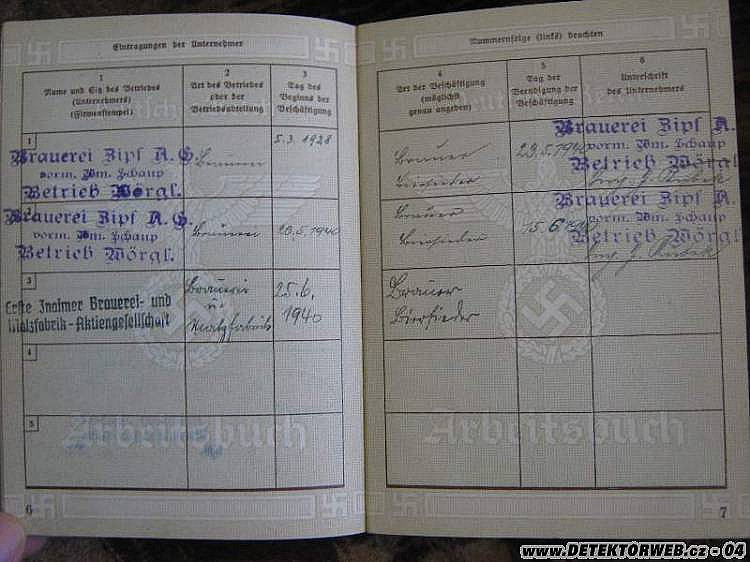 Eintragungen der Unternehmer
1
Name und Sitz des Betriebes
(Unternehmers)
(Firmenstempel)
2
Art des Betriebes
oder der
Betriebsabteilung
3
Tag des
Beginns der
Beschäftigung
1
Brauerei Zipf A.G.
vorm. Wm. Schaup
Betrieb Wörgl.
5.3.1928
Brauerei Zipf A.G.
vorm. Wm. Schaup
Betrieb Wörgl.
20.5.1940
3
Erste Znaimer Brauerei- und
Malzfabrik-Aktiengesellschaft
Brauerei
u.
Malzfabrik
25.6.
1940
4
5
Arbeitsbuch
6
Nummernfolge (links) beachten
4
Art der Beschäftigung
(möglichst
genau angeben)
5
Tag der
Beendigung der
Beschäftigung
6
Unterschrift
des Unternehmers
Brauer
Biersieder
23.5.1940
Brauerei Zipf A.
vorm. Wm. Schaup
Betrieb Wörgl.
Brauer
Biersieder
15.6.1940
Brauerei Zipf A.
vorm. Wm. Schaup
Betrieb Wörgl.
Brauer
Biersieder
Arbeitsbuch
7
www.DETEKTORWEB.cz - 04